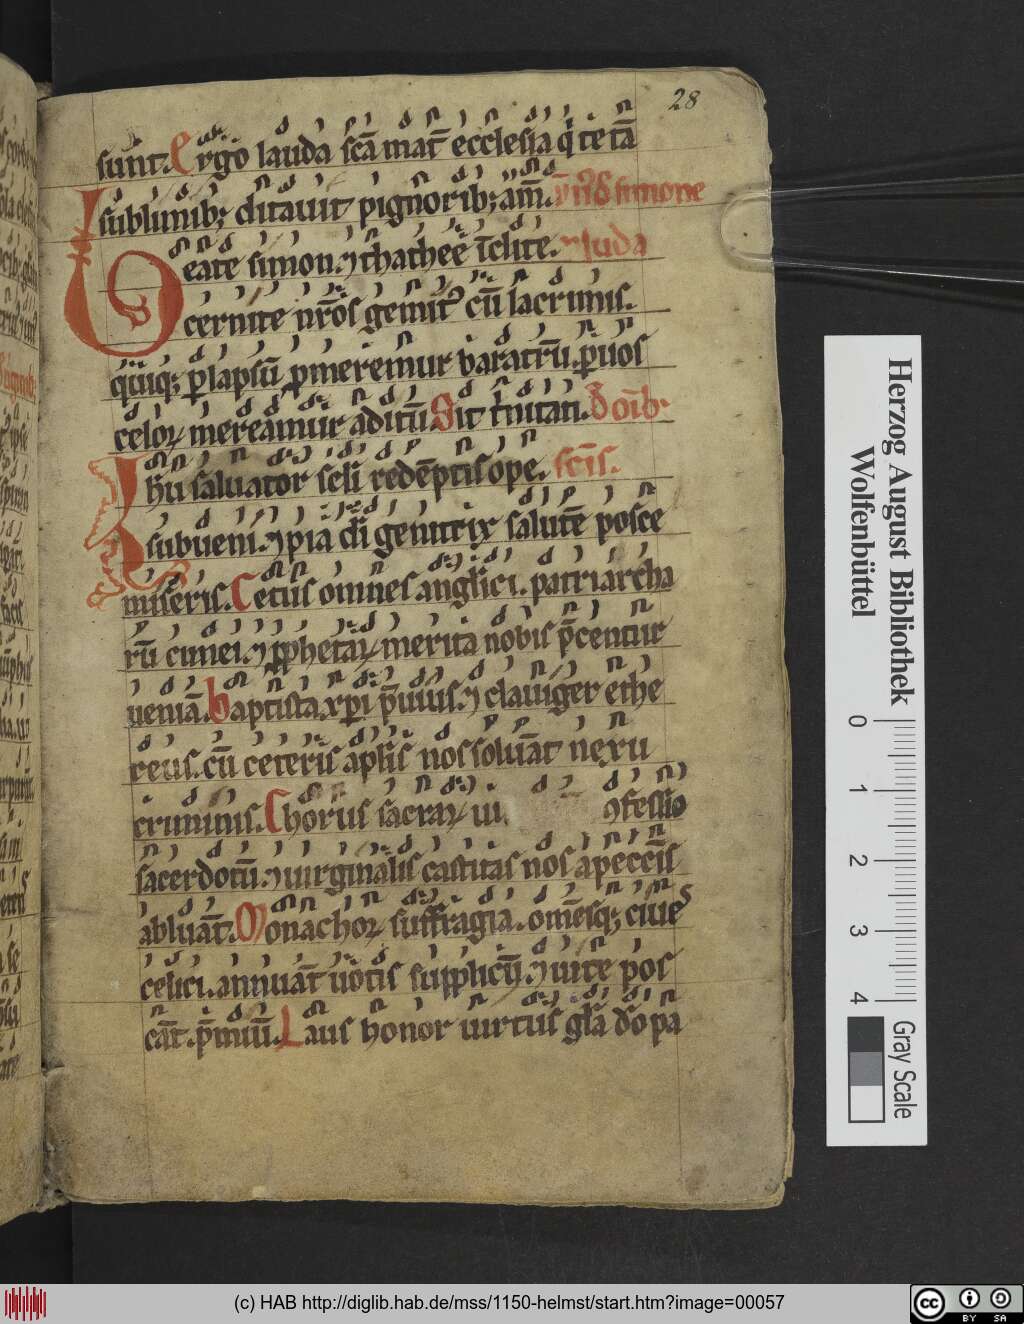 28
sunt. Ergo lauda scā mat̄ ecclesia q̄ te tā
sublimib; ditauit pignorib; am̄.
simone
Beate simon ⁊ thathee īclite.
Juda
cernite nr̄os gemit᷒ cū lacrimis.
quiq; ꝑ lapsū ꝓmeremur baratrū. ꝑ uos
celoꝝ mereamur aditū Sit t̄nitati. D̄ oīb.
Ihu saluator scli redēptis ope. scīs.
subueni. ⁊ pia di genitrix salutē posce
miseris. Cetus omnes anglici. patriarcha
rū cunei. ⁊ ꝓphetaꝝ merita nobis p̄centur
ueniā. baptista xp̄i p̄uius. ⁊ clauiger ethe
reus. cū ceteris apłis nos soluāt nexu
criminis. Chorus sacraꝝ ui ꝯfessio
sacerdotū. ⁊ uirginalis castitas nos a peccīs
abluāt. Monachoꝝ suffragia. omēsq; ciue
celici. annuāt uotis supplicū. ⁊ uite pos
cāt p̄miū. Laus honor uirtus glā do pa
Herzog August Bibliothek
Wolfenbüttel
0 1 2 3 4
Gray Scale
(c) HAB http://diglib.hab.de/mss/1150-helmst/start.htm?image=00057
cc BY SA